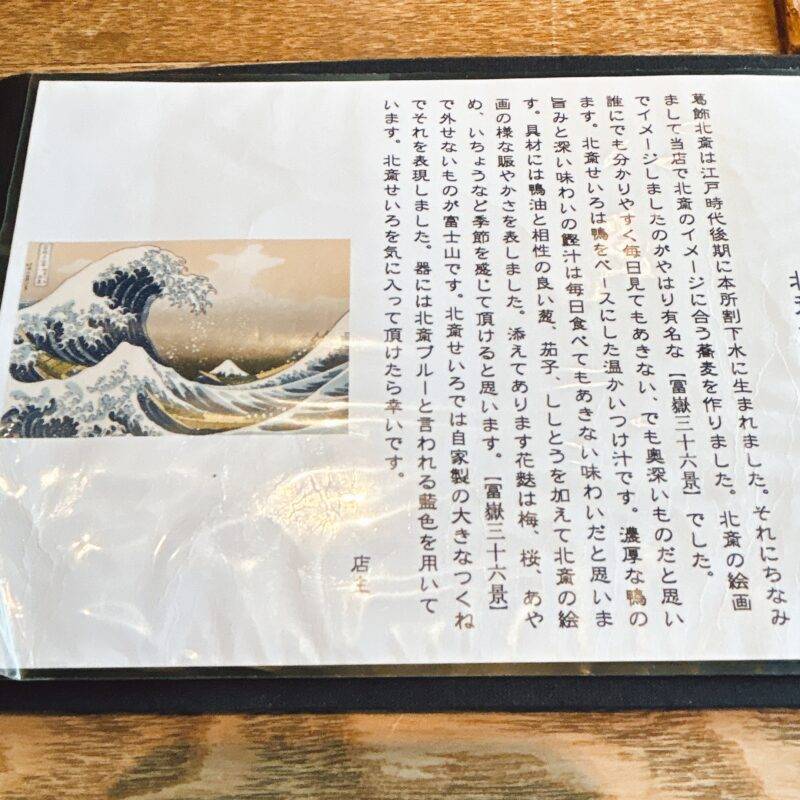 北斎
葛飾北斎は江戸時代後期に本所割下水に生まれました。それにちなみ
まして当店で北斎のイメージに合う蕎麦を作りました。北斎の絵画
でイメージしましたのがやはり有名な【富嶽三十六景】でした。
誰にでも分かりやすく毎日見てもあきない、でも奥深いものだと思い
ます。北斎せいろは鴨をベースにした温かいつけ汁です。濃厚な鴨の
旨みと深い味わいの鰹汁は毎日食べてもあきない味わいだと思いま
す。具材には鴨油と相性の良い葱、茄子、ししとうを加えて北斎の絵
画の様な賑やかさを表しました。添えてあります花麩は梅、桜、あや
め、いちょうなど季節を感じて頂けると思います。【冨嶽三十六景】
で外せないものが富士山です。北斎せいろでは自家製の大きなつくね
でそれを表現しました。器には北斎ブルーと言われる藍色を用いて
います。北斎せいろを気に入って頂けたら幸いです。
店主